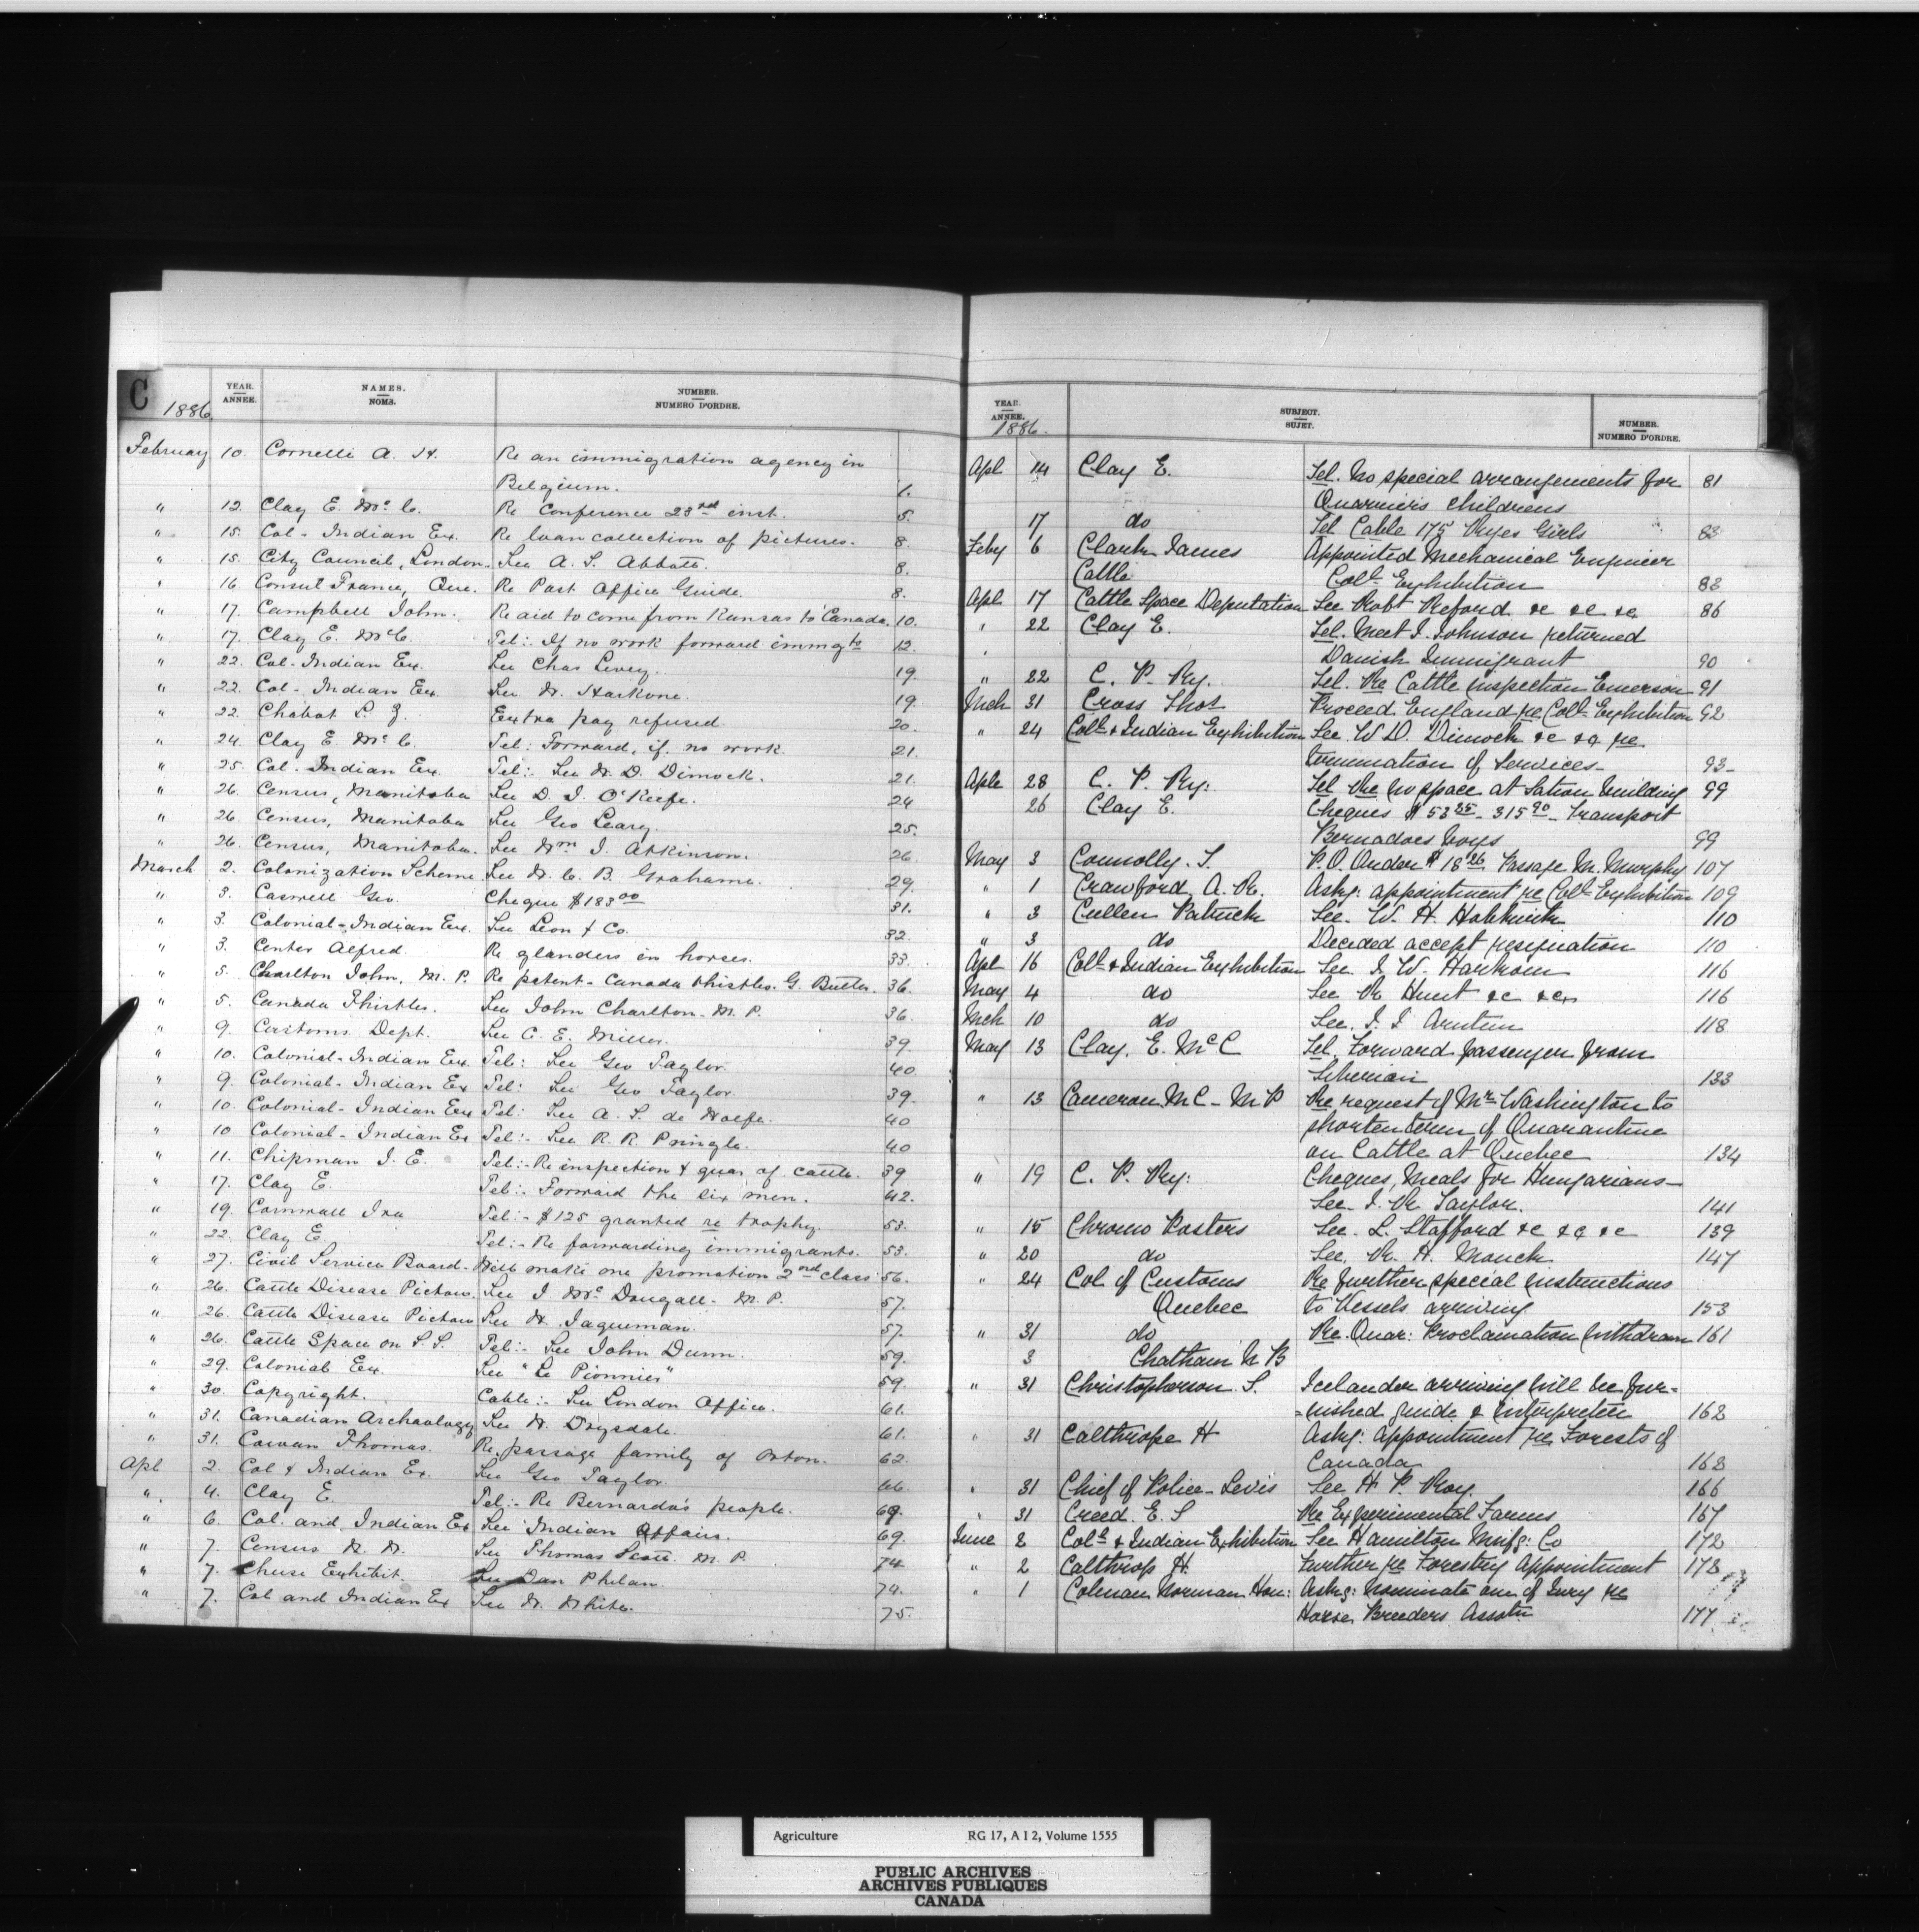 C
1886
YEAR. ANNEE. NAMES. NOMS. NUMBER. NUMERO D'ORDRE.
February 10. Cornelli A. H. Re an immigration agency in
Belgium. 1.
" 12. Clay E. Mc C. Re Conference 23rd inst. 5.
" 15. Col - Indian Ex. Re loan collection of pictures. 8.
" 15. City Council, London. See A. S. Abbott. 8.
" 16 Consul France, Que. Re Post Office Guide. 8.
" 17. Campbell John. Re aid to come from Kansas to Canada. 10.
" 17. Clay E. McC. Tel: If no work forward immgts 12.
" 22. Col - Indian Ex. See Chas Levey. 19.
" 22. Col - Indian Ex. See W. Harkone. 19.
" 22. Chabot L. Z. Extra pay refused 20.
" 24. Clay E. Mc C. Tel: Forward, if no work. 21.
" 25. Col - Indian Ex. Tel:- See W. D. Dimock. 21.
" 26. Census, Manitoba See D. J. O'Keefe. 24
" 26. Census, Manitoba See Geo Leary. 25.
" 26. Census, Manitoba. See Wm J. Atkinson. 26
March 2. Colonization Scheme See W. C. B. Grahame. 29.
" 3. Caswell Geo. Cheque $183.00 31.
" 3. Colonial-Indian Ex. See Leon & Co. 32.
" 3. Center Alfred. Re glanders in horses. 33.
" 5. Charlton John, M. P. Re patent - Canada thistles. G. Butler. 36.
" 5. Canada Thistles. See John Charlton - M. P. 36.
" 9. Customs Dept. See C. E. Miller. 39.
" 10. Colonial-Indian Ex. Tel: See Geo Taylor 40.
" 9. Colonial-Indian Ex Tel: See Geo Taylor. 39.
" 10. Colonial-Indian Ex Tel: See A. S. de Wolfe. 40
" 10 Colonial-Indian Ex Tel:- See R. R. Pringle. 40
" 11. Chipman J. E. Tel:- Re inspection & quar of cattle. 39
" 17. Clay E. Tel:- Forward the six men. 42.
" 19. Cornwall Ira Tel:- $125 granted re trophy. 53.
" 22. Clay E. Tel:- Re forwarding immigrants. 53.
" 27. Civil Service Board - Will make one promotion 2nd class 56.
" 26. Cattle Disease Pictou. See J. McDougall - M. P. 57.
" 26. Cattle Disease Pictou See W. Jaqueman. 57.
" 26. Cattle Space on S.S. Tel:- See John Dunn. 59.
" 29. Colonial Ex. See "Le Pionnier" 59.
" 30. Copyright. Cable:- See London Office. 61.
" 31. Canadian Archaeology See W. Drysdale. 61.
" 31. Cowan Thomas. Re passage family of Orton. 62.
Apl 2. Col & Indian Ex. See Geo Taylor. 66.
" 4. Clay E. Tel:- Re Bernardo's people. 69.
" 6. Col. and Indian Ex See Indian Affairs. 69.
" 7. Census N. W. See Thomas Scott M. P. 74
" 7. Cheese Exhibit. See Dan Phelan. 74.
" 7. Col and Indian Ex See W. White. 75.
YEAR. ANNEE. SUBJECT. SUJET. NUMBER. NUMERO D'ORDRE.
1886.
Apl 14 Clay E. Tel. No special arrangements for 81
Quarriers childrens
17 do Tel Cable 175 Ryes Girls 83
Feby 6 Clarke James Appointed Mechanical Engineer
Cattle Coll Exhibition 82
Apl 17 Cattle Space Deputation See Robt Reford &c &c &c 86
" 22 Clay E. Tel. Meet J. Johnson returned
" Danish Immigrant 90
" 22 C. P. Ry. Tel. Re Cattle inspection Emerson 91
Mch 31 Cross Thos Proceed England re Coll Exhibition 92
" 24 Coll & Indian Exhibition See W D. Dimock &c &c re
termination of services - 93 -
Aple 28 C. P. Ry: Tel Re no space at Station building 99
26 Clay E. Cheques $53 25 - 315 90 - transport
Bernadoes boys 99
May 3 Connolly. T. P. O. Order $18 26 Passage M. Murphy 107
" 1 Crawford A. R. Askg: appointment re Coll Exhibition 109
" 3 Cullen Patrick See. W. H. Hobkirk 110
" 3 do Decided accept resignation 110
Apl 16 Coll & Indian Exhibition See. J. W. Harkom 116
May 4 do See R Hunt &c &c 116
Mch 10 do See. J. J 118
May 13 Clay. E. McC Tel. Forward passenger from
Siberian 133
" 13 Cameron M C - M P Re request of Mr Washington to
shorten term of Quarantine
on Cattle at Quebec 134
" 19 C. P. Ry: Cheques, Meals for Hungarians -
See. J. R Taylor. 141
" 15 Chromo Posters See. L. Stafford &c &c &c 139
" 20 do See. R. H. Monck 147
" 24 Col of Customs Re further special instructions
Quebec to Vessels arriving 153
" 31 do Re. Quar: Proclamation withdrawn 161
3 Chatham N B
" 31 Christopherson. S. Icelander arriving will be fur=
=nished guide & interpreter 162
" 31 Calthrope H Askg: appointment re Forests of
Canada 163
" 31 Chief of Police - Levis See H. P. Roy. 166
" 31 Creed. E. S Re Experimental Farms 167
June 2 Coll & Indian Exhibition See Hamilton Mnfg: Co 172
" 2 Calthrop H. Further re Forestry Appointment 173
" 1 Colman Norman Hon: Askg: nominate one of Jury re
Horse Breeders Assotn 177
Agriculture RG 17, A I 2, Volume 1555
PUBLIC ARCHIVES
ARCHIVES PUBLIQUES
CANADA